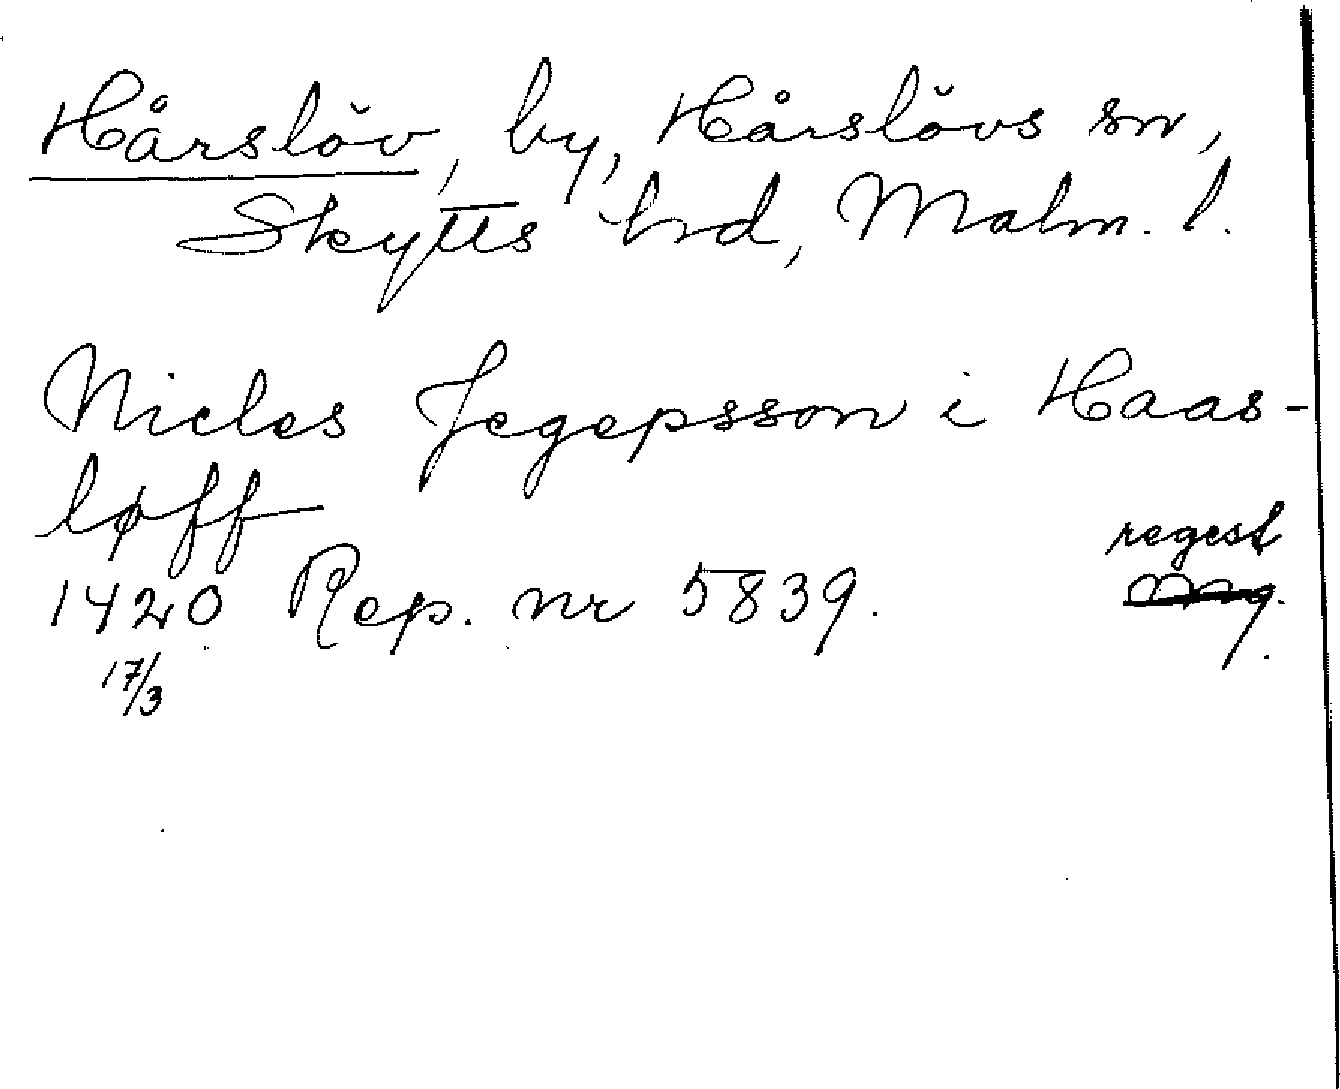 Hårslöv, by, Hårslövs sn,
Skytts hrd, Malm. l.
Nicles Jegepsson i Haas-
løff
regest
1420 Rep. nr 5839.
17/3